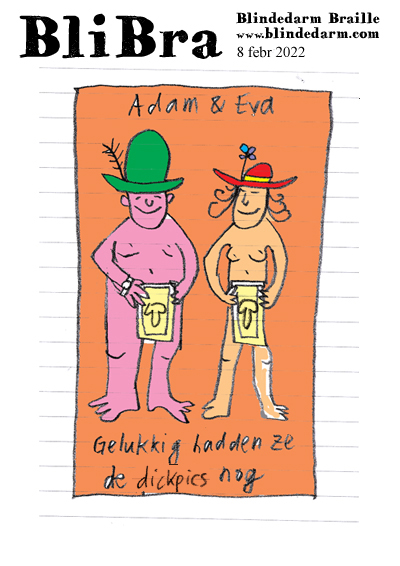 BliBra
Blindedarm Braille
www.blindedarm.com
8 febr 2022
Adam & Eva
Gelukkig hadden ze
de dickpics nog